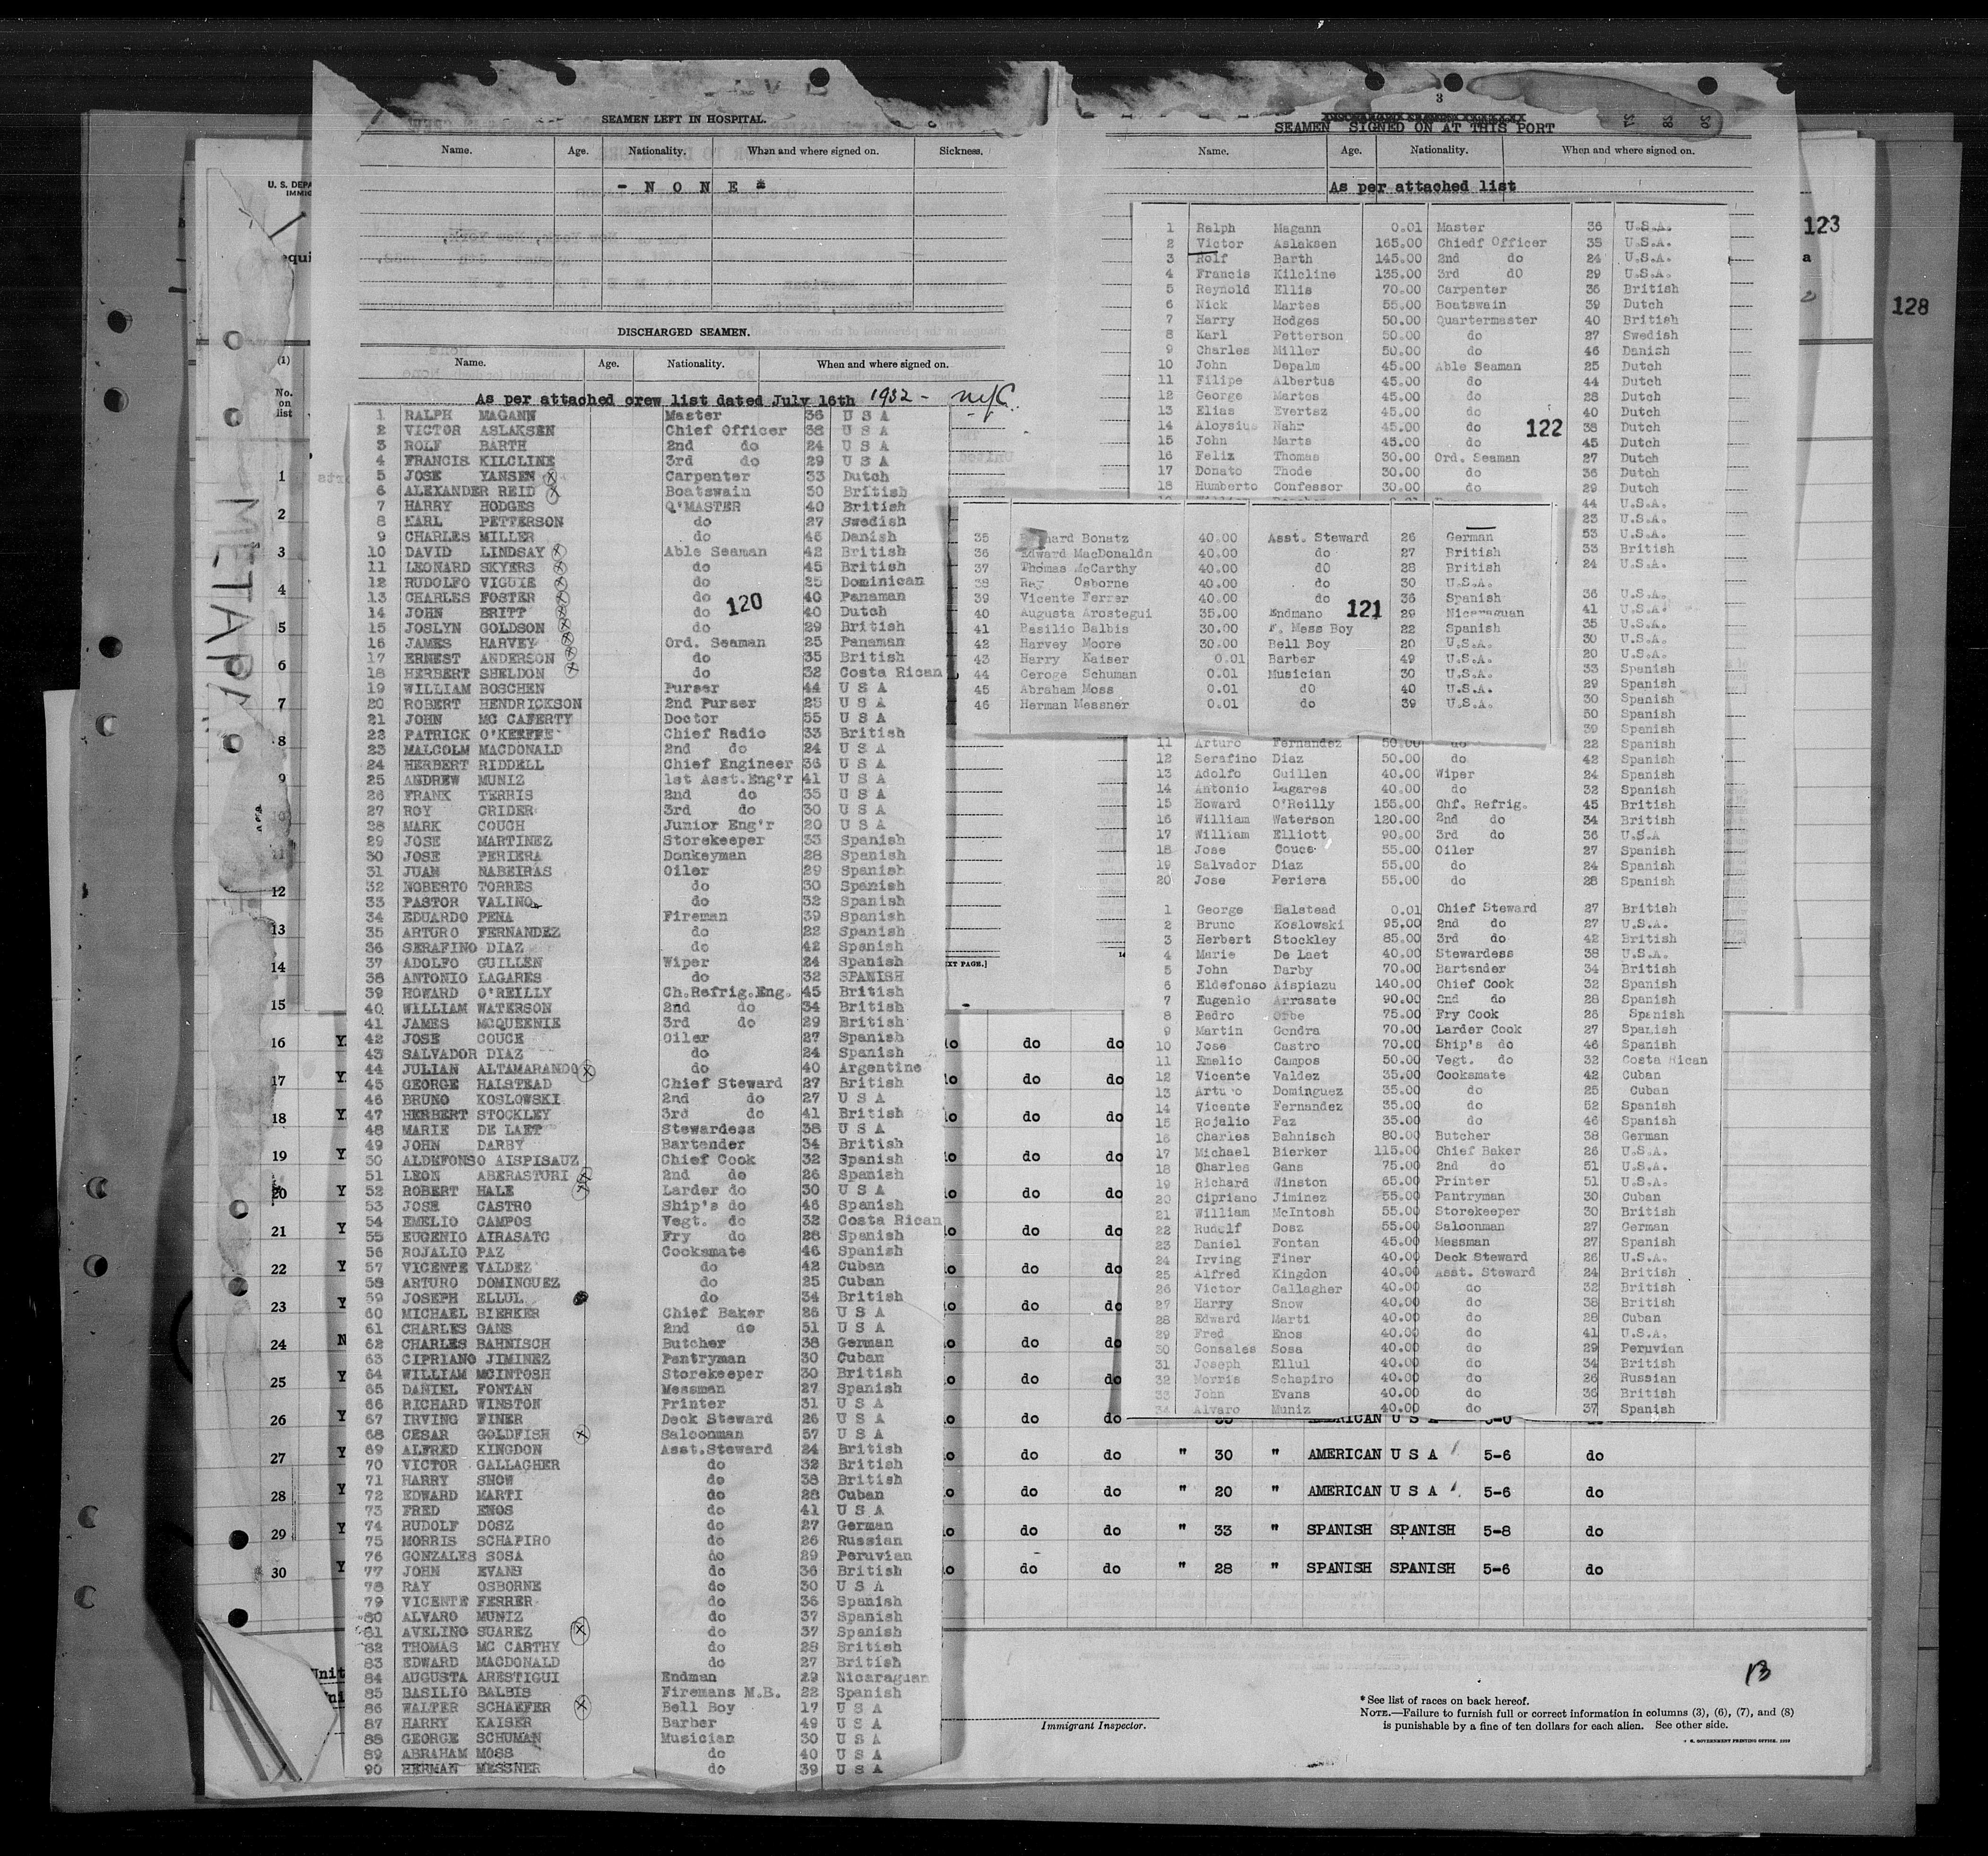 SEAMEN LEFT IN HOSPITAL.
Name. Age. Nationality. When and where signed on. Sickness.
- N O N E *
DISCHARGED SEAMEN.
Name. Age. Nationality. When and where signed on.
As per attached crew list dated July 16th 1932 - N.Y.C.
1 RALPH MAGANN Master 36 U S A
2 VICTOR ASLAKSEN Chief Officer 38 U S A
3 ROLF BARTH 2nd do 24 U S A
4 FRANCIS KILCLINE 3rd do 29 U S A
5 JOSE YANSEN Carpenter 33 Dutch
6 ALEXANDER REID Boatswain 50 British
7 HARRY HODGES Q'MASTER 40 British
8 KARL PETTERSON do 27 Swedish
9 CHARLES MILLER do 46 Danish
10 DAVID LINDSAY Able Seaman 42 British
11 LEONARD SKYERS do 45 British
12 RUDOLFO VIGUIE do 25 Dominican
13 CHARLES FOSTER do 40 Panaman
14 JOHN BRITT do 40 Dutch
120
15 JOSLYN GOLDSON do 29 British
16 JAMES HARVEY Ord. Seaman 25 Panaman
17 ERNEST ANDERSON do 35 British
18 HERBERT SHELDON do 32 Costa Rican
19 WILLIAM BOSCHEN Purser 44 U S A
20 ROBERT HENDRICKSON 2nd Purser 23 U S A
21 JOHN MC CAFERTY Doctor 55 U S A
22 PATRICK O'KEEFFE Chief Radio 33 British
23 MALCOLM MACDONALD 2nd do 24 U S A
24 HERBERT RIDDELL Chief Engineer 36 U S A
25 ANDREW MUNIZ 1st Asst.Eng'r 41 U S A
26 FRANK TERRIS 2nd do 35 U S A
27 ROY CRIDER 3rd do 30 U S A
28 MARK COUCH Junior Eng'r 20 U S A
29 JOSE MARTINEZ Storekeeper 33 Spanish
30 JOSE PERIERA Donkeyman 28 Spanish
31 JUAN NABEIRAS Oiler 29 Spanish
32 NOBERTO TORRES do 30 Spanish
33 PASTOR VALINO do 32 Spanish
34 EDUARDO PENA Fireman 39 Spanish
35 ARTURO FERNANDEZ do 22 Spanish
36 SERAFINO DIAZ do 42 Spanish
37 ADOLFO GUILLEN Wiper 24 Spanish
38 ANTONIO LAGARES do 32 SPANISH
39 HOWARD O'REILLY Ch.Refrig.Eng. 45 British
40 WILLIAM WATERSON 2nd do 34 British
41 JAMES MCQUEENIE 3rd do 29 British
42 JOSE COUCE Oiler 27 Spanish
43 SALVADOR DIAZ do 24 Spanish
44 JULIAN ALTAMARANDO do 40 Argentine
45 GEORGE HALSTEAD Chief Steward 27 British
46 BRUNO KOSLOWSKI 2nd do 27 U S A
47 HERBERT STOCKLEY 3rd do 41 British
48 MARIE DE LAET Stewardess 38 U S A
49 JOHN DARBY Bartender 34 British
50 ALDEFONSO AISPISAUZ Chief Cook 32 Spanish
51 LEON ABERASTURI 2nd do 26 Spanish
52 ROBERT HALE Larder do 30 U S A
53 JOSE CASTRO Ship's do 46 Spanish
54 EMELIO CAMPOS Vegt. do 32 Costa Rican
55 EUGENIO AIRASATC Fry do 28 Spanish
56 ROJALIO PAZ Cooksmate 46 Spanish
57 VICENTE VALDEZ do 42 Cuban
58 ARTURO DOMINGUEZ do 25 Cuban
59 JOSEPH ELLUL do 34 British
60 MICHAEL BIERKER Chief Baker 26 U S A
61 CHARLES GANS 2nd do 51 U S A
62 CHARLES BAHNISCH Butcher 38 German
63 CIPRIANO JIMINEZ Pantryman 30 Cuban
64 WILLIAM MCINTOSH Storekeeper 30 British
65 DANIEL FONTAN Messman 27 Spanish
66 RICHARD WINSTON Printer 31 U S A
67 IRVING FINER Deck Steward 26 U S A
68 CESAR GOLDFISH Saloonman 57 U S A
69 ALFRED KINGDON Asst.Steward 24 British
70 VICTOR GALLAGHER do 32 British
71 HARRY SNOW do 38 British
72 EDWARD MARTI do 28 Cuban
73 FRED ENOS do 41 U S A
74 RUDOLF DOSZ do 27 German
75 MORRIS SCHAPIRO do 26 Russian
76 GONZALES SOSA do 29 Peruvian
77 JOHN EVANS do 36 British
78 RAY OSBORNE do 30 U S A
79 VICENTE FERRER do 36 Spanish
80 ALVARO MUNIZ do 37 Spanish
81 AVELINO SUAREZ do 37 Spanish
82 THOMAS MC CARTHY do 28 British
83 EDWARD MACDONALD do 27 British
84 AUGUSTA ARESTIGUI Endman 29 Nicaraguan
85 BASILIO BALBIS Firemans M.B. 22 Spanish
86 WALTER SCHAEFER Bell Boy 17 U S A
87 HARRY KAISER Barber 49 U S A
88 GEORGE SCHUMAN Musician 30 U S A
89 ABRAHAM MOSS do 40 U S A
90 HERMAN MESSNER do 39 U S A
3
SEAMEN SIGNED ON AT THIS PORT
Name. Age. Nationality. When and where signed on.
As per attached list
1 Ralph Magann 0.01 Master 36 U.S.A.
2 Victor Aslaksen 165.00 Chiedf Officer 38 U.S.A.
3 Rolf Barth 145.00 2nd do 24 U.S.A.
4 Francis Kilcline 135.00 3rd dO 29 U.S.A.
5 Reynold Ellis 70.00 Carpenter 36 British
6 Nick Martes 55.00 Boatswain 39 Dutch
7 Harry Hodges 50.00 Quartermaster 40 British
8 Karl Petterson 50.00 do 27 Swedish
9 Charles Miller 50.00 do 46 Danish
10 John Depalm 45.00 Able Seaman 25 Dutch
11 Filipe Albertus 45.00 do 44 Dutch
12 George Martes 45.00 do 28 Dutch
13 Elias Evertsz 45.00 do 40 Dutch
14 Aloysius Nahr 45.00 do 38 Dutch
122
15 John Marts 45.00 do 45 Dutch
16 Feliz Thomas 30.00 Ord. Seaman 27 Dutch
17 Donato Thode 30.00 do 36 Dutch
18 Humberto Confessor 30.00 do 29 Dutch
44 U.S.A.
23 U.S.A.
53 U.S.A.
33 British
24 U.S.A.
36 U.S.A.
41 U.S.A.
35 U.S.A.
30 U.S.A.
20 U.S.A.
33 Spanish
29 Spanish
30 Spanish
50 Spanish
39 Spanish
35 Bonatz 40.00 Asst. Steward 26 German
36 Edward MacDonaldn 40.00 do 27 British
37 Thomas McCarthy 40.00 dO 28 British
38 Ray Osborne 40.00 do 30 U.S.A.
39 Vicente Ferrer 40.00 do 36 Spanish
40 Augusta Arostegui 35.00 Endmano 29 Nicaraguan
121
41 Basilio Balbis 30.00 F. Mess Boy 22 Spanish
42 Harvey Moore 30.00 Bell Boy 20 U.S.A.
43 Harry Kaiser 0.01 Barber 49 U.S.A.
44 Ceroge Schuman 0.01 Musician 30 U.S.A.
45 Abraham Moss 0.01 dO 40 U.S.A.
46 Herman Messner 0.01 do 39 U.S.A.
11 Arturo Fernandez 50.00 do 22 Spanish
12 Serafino Diaz 50.00 do 42 Spanish
13 Adolfo Guillen 40.00 Wiper 24 Spanish
14 Antonio Lagares 40.00 do 32 Spanish
15 Howard O'Reilly 155.00 Chf. Refrig. 45 British
16 William Waterson 120.00 2nd do 34 British
17 William Elliott 90.00 3rd do 36 U.S.A
18 Jose Couce 55.00 Oiler 27 Spanish
19 Salvador Diaz 55.00 do 24 Spanish
20 Jose Periera 55.00 do 28 Spanish
1 George Halstead 0.01 Chief Steward 27 British
2 Bruno Koslowski 95.00 2nd do 27 U.S.A.
3 Herbert Stockley 85.00 3rd do 42 British
4 Marie De Laet 40.00 Stewardess 38 U.S.A.
5 John Darby 70.00 Bartender 34 British
6 Eldefonso Aispiazu 140.00 Chief Cook 32 Spanish
7 Eugenio Arrasate 90.00 2nd do 28 Spanish
8 Pedro Orbe 75.00 Fry Cook 26 Spanish
9 Martin Gendra 70.00 Larder Cook 27 Spanish
10 Jose Castro 70.00 Ship's do 46 Spanish
11 Emelio Campos 50.00 Vegt. do 32 Costa Rican
12 Vicente Valdez 35.00 Cooksmate 42 Cuban
13 Arturo Dominguez 35.00 do 25 Cuban
14 Vicente Fernandez 35.00 do 52 Spanish
15 Rojalio Paz 35.00 do 46 Spanish
16 Charles Bahnisch 80.00 Butcher 38 German
17 Michael Bierker 115.00 Chief Baker 26 U.S.A.
18 Charles Gans 75.00 2nd do 51 U.S.A.
19 Richard Winston 65.00 Printer 51 U.S.A.
20 Cipriano Jiminez 55.00 Pantryman 30 Cuban
21 William McIntosh 55.00 Storekeeper 30 British
22 Rudolf Dosz 55.00 Saloonman 27 German
23 Daniel Fontan 45.00 Messman 27 Spanish
24 Irving Finer 40.00 Deck Steward 26 U.S.A.
25 Alfred Kingdon 40.00 Asst. Steward 24 British
26 Victor Gallagher 40.00 do 32 British
27 Harry Snow 40.00 do 38 British
28 Edward Marti 40.00 do 28 Cuban
29 Fred Enos 40.00 do 41 U.S.A.
30 Gonsales Sosa 40.00 do 29 Peruvian
31 Joseph Ellul 40.00 do 34 British
32 Morris Schapiro 40.00 do 26 Russian
33 John Evans 40.00 do 36 British
34 Alvaro Muniz 40.00 do 37 Spanish
123
128
U. S. DEPA
IMMIG
equi
(1)
No.
on
list
METAPA
1
2
3
4
5
6
7
8
9
10
11
12
13
14
15
EXT PAGE.]
16 Y do do do
17 Y do do do
18 Y do do do
19 Y do do do
20 Y do do do
21 Y do do do
22 Y do do do
23 Y do do do
24 N do do do
25 Y do do do
26 Y do do do AMERICAN U S A do
27 Y do do do " 30 " AMERICAN U S A 5-6 do
28 Y do do do " 20 " AMERICAN U S A 5-6 do
29 Y do do do " 33 " SPANISH SPANISH 5-8 do
30 Y do do do " 28 " SPANISH SPANISH 5-6 do
Unit
Uni
Immigrant Inspector.
13
* See list of races on back hereof.
NOTE.—Failure to furnish full or correct information in columns (3), (6), (7), and (8)
is punishable by a fine of ten dollars for each alien. See other side.
GOVERNMENT PRINTING OFFICE